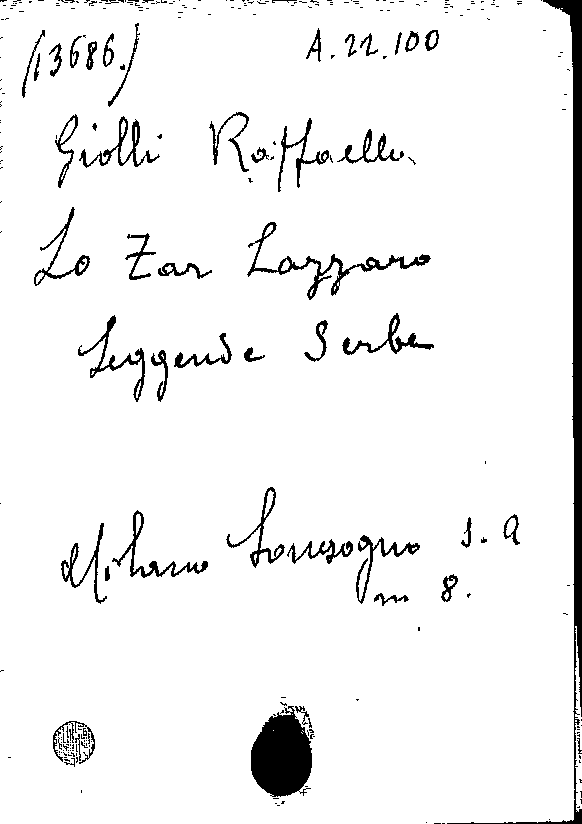 (13686.) A.22.100
Giolli Raffaello
Lo Zar Lazzaro
Leggende Serbe
Milano Sonzogno s.a
in 8.